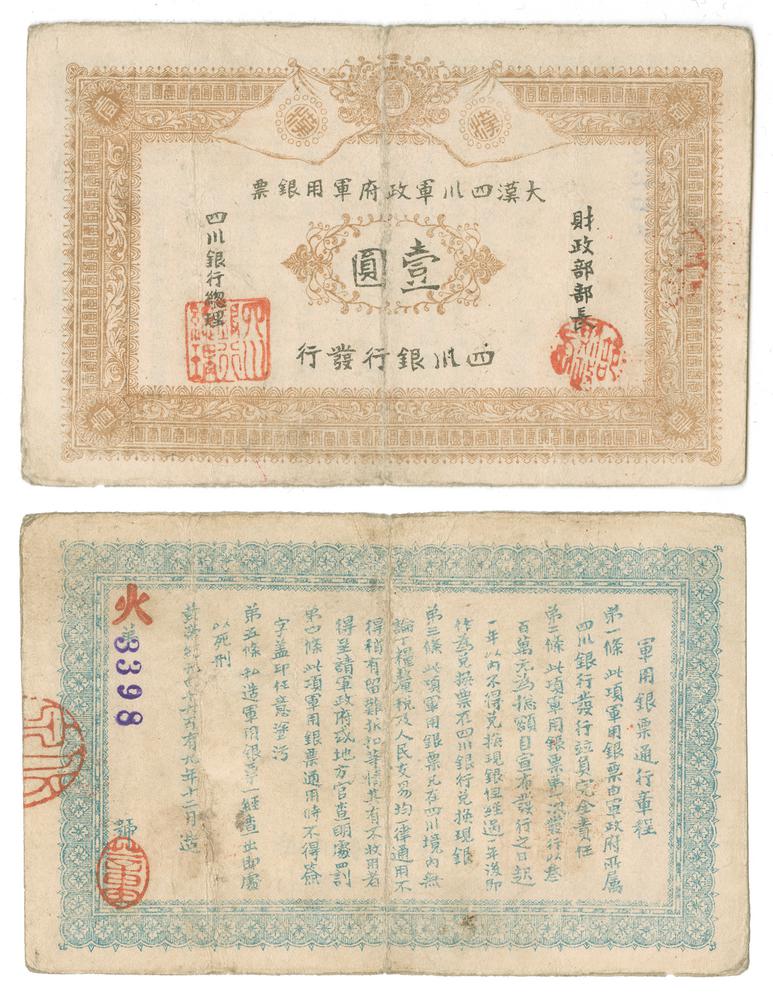 漢
漢
大漢四川軍政府軍用銀票
財政部部長
壹圓
四川銀行總理
四川銀行發行
軍用銀票通行章程
第一條 此項軍用銀票由軍政府所屬
四川銀行發行並負完全責任
第二條 此項軍用銀票第一次發行以叁
百萬元為總額自宣布發行之日起
一年以內不得兌換現銀但經過一年後即
作為兌換票在四川銀行兌換現銀
第三條 此項軍用銀票凡在四川境內無
論丁糧釐稅及人民交易均一律通用不
得稍有留難折扣等情其有不收用者
得呈請軍政府或地方官查明處罰
第四條 此項軍用銀票通用時不得簽
字蓋印任意塗污
第五條 私造軍用銀票一經查出即處
以死刑
黃帝紀元四千六百有九年十二月 造
火 第3398號